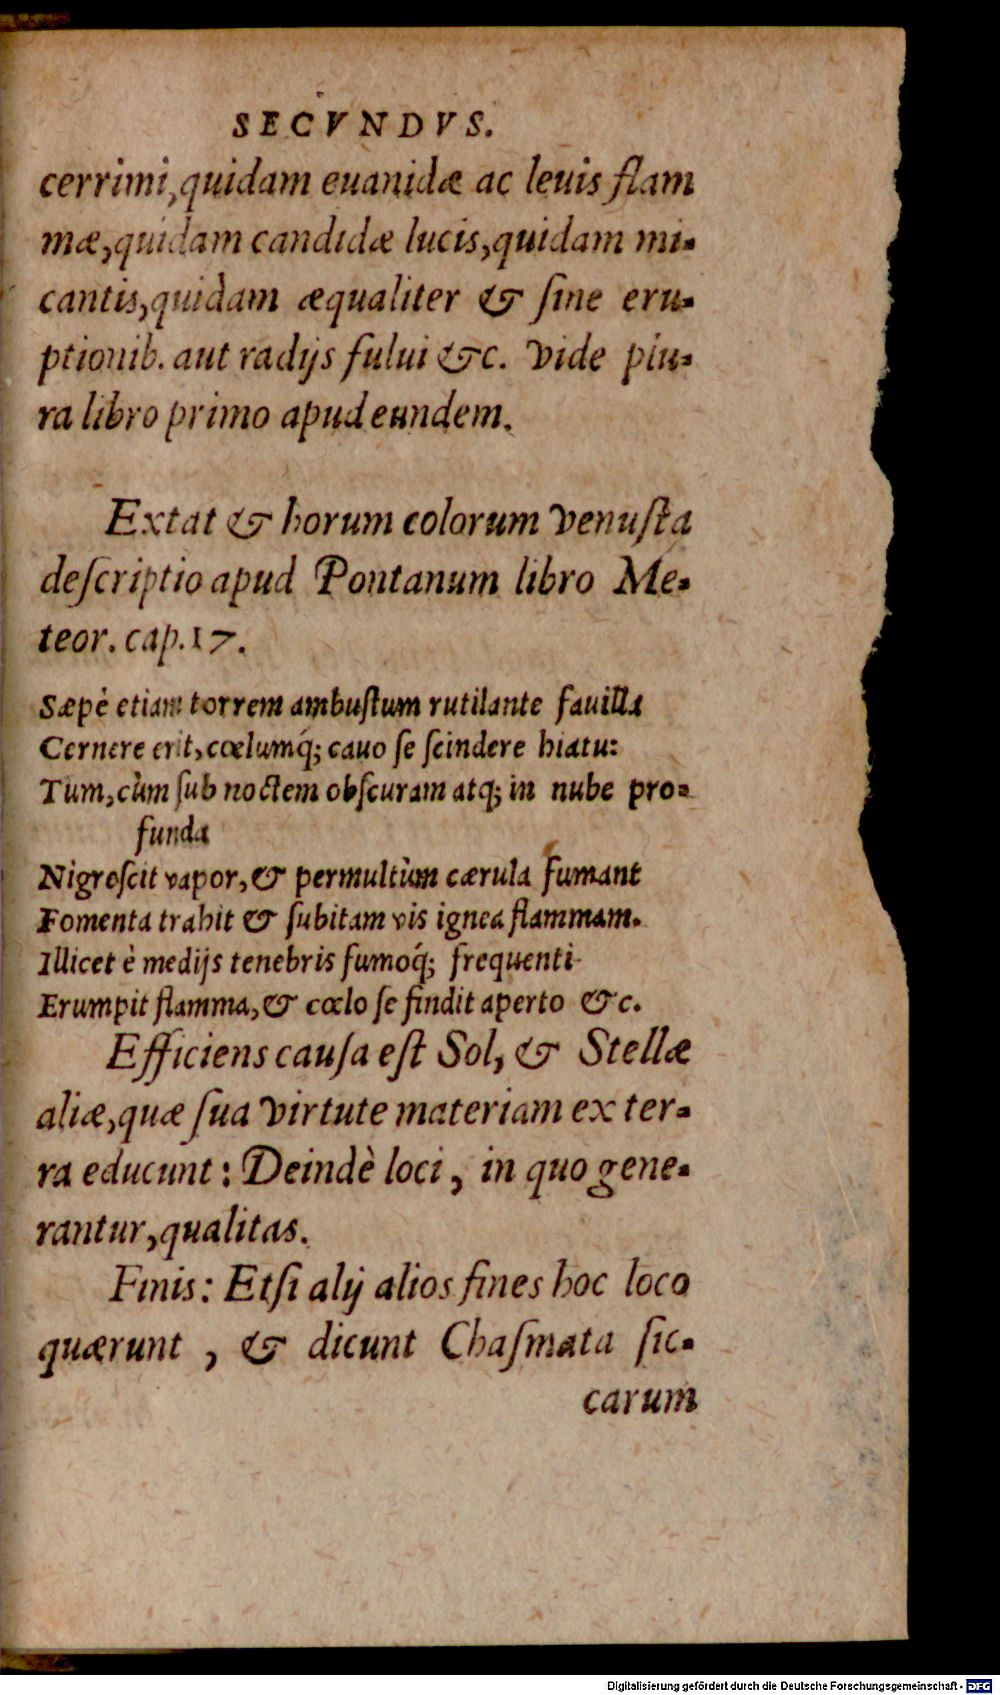 SECVNDVS.
cerrimi,quidam euanidæ ac leuis flam
mæ,quidam candidæ lucis,quidam mi-
cantis,quidam æqualiter & ſine eru-
ptionib. aut radijs fului &c. Vide plu-
ra libro primo apud eundem.
Extat & horum colorum Venuſta
deſcriptio apud Pontanum libro Me-
teor. cap.17.
Sæpè etiam torrem ambuſtum rutilante fauilla
Cernere erit,cœlumq́; cauo ſe ſcindere hiatu:
Tum,cùm ſub noctem obſcuram atq; in nube pro-
funda
Nigreſcit vapor,& permultùm cærula fumant
Fomenta trahit & ſubitam vis ignea flammam.
Illicet è medijs tenebris fumoq́; frequenti
Erumpit flamma,& cœlo ſe findit aperto &c.
Efficiens cauſa eſt Sol, & Stellæ
aliæ,quæ ſua Virtute materiam ex ter-
ra educunt: Deindè loci, in quo gene-
rantur,qualitas.
Finis: Etſi alij alios fines hoc loco
quærunt, & dicunt Chaſmata ſic-
carum
Digitalisierung gefördert durch die Deutsche Forschungsgemeinschaft - DFG